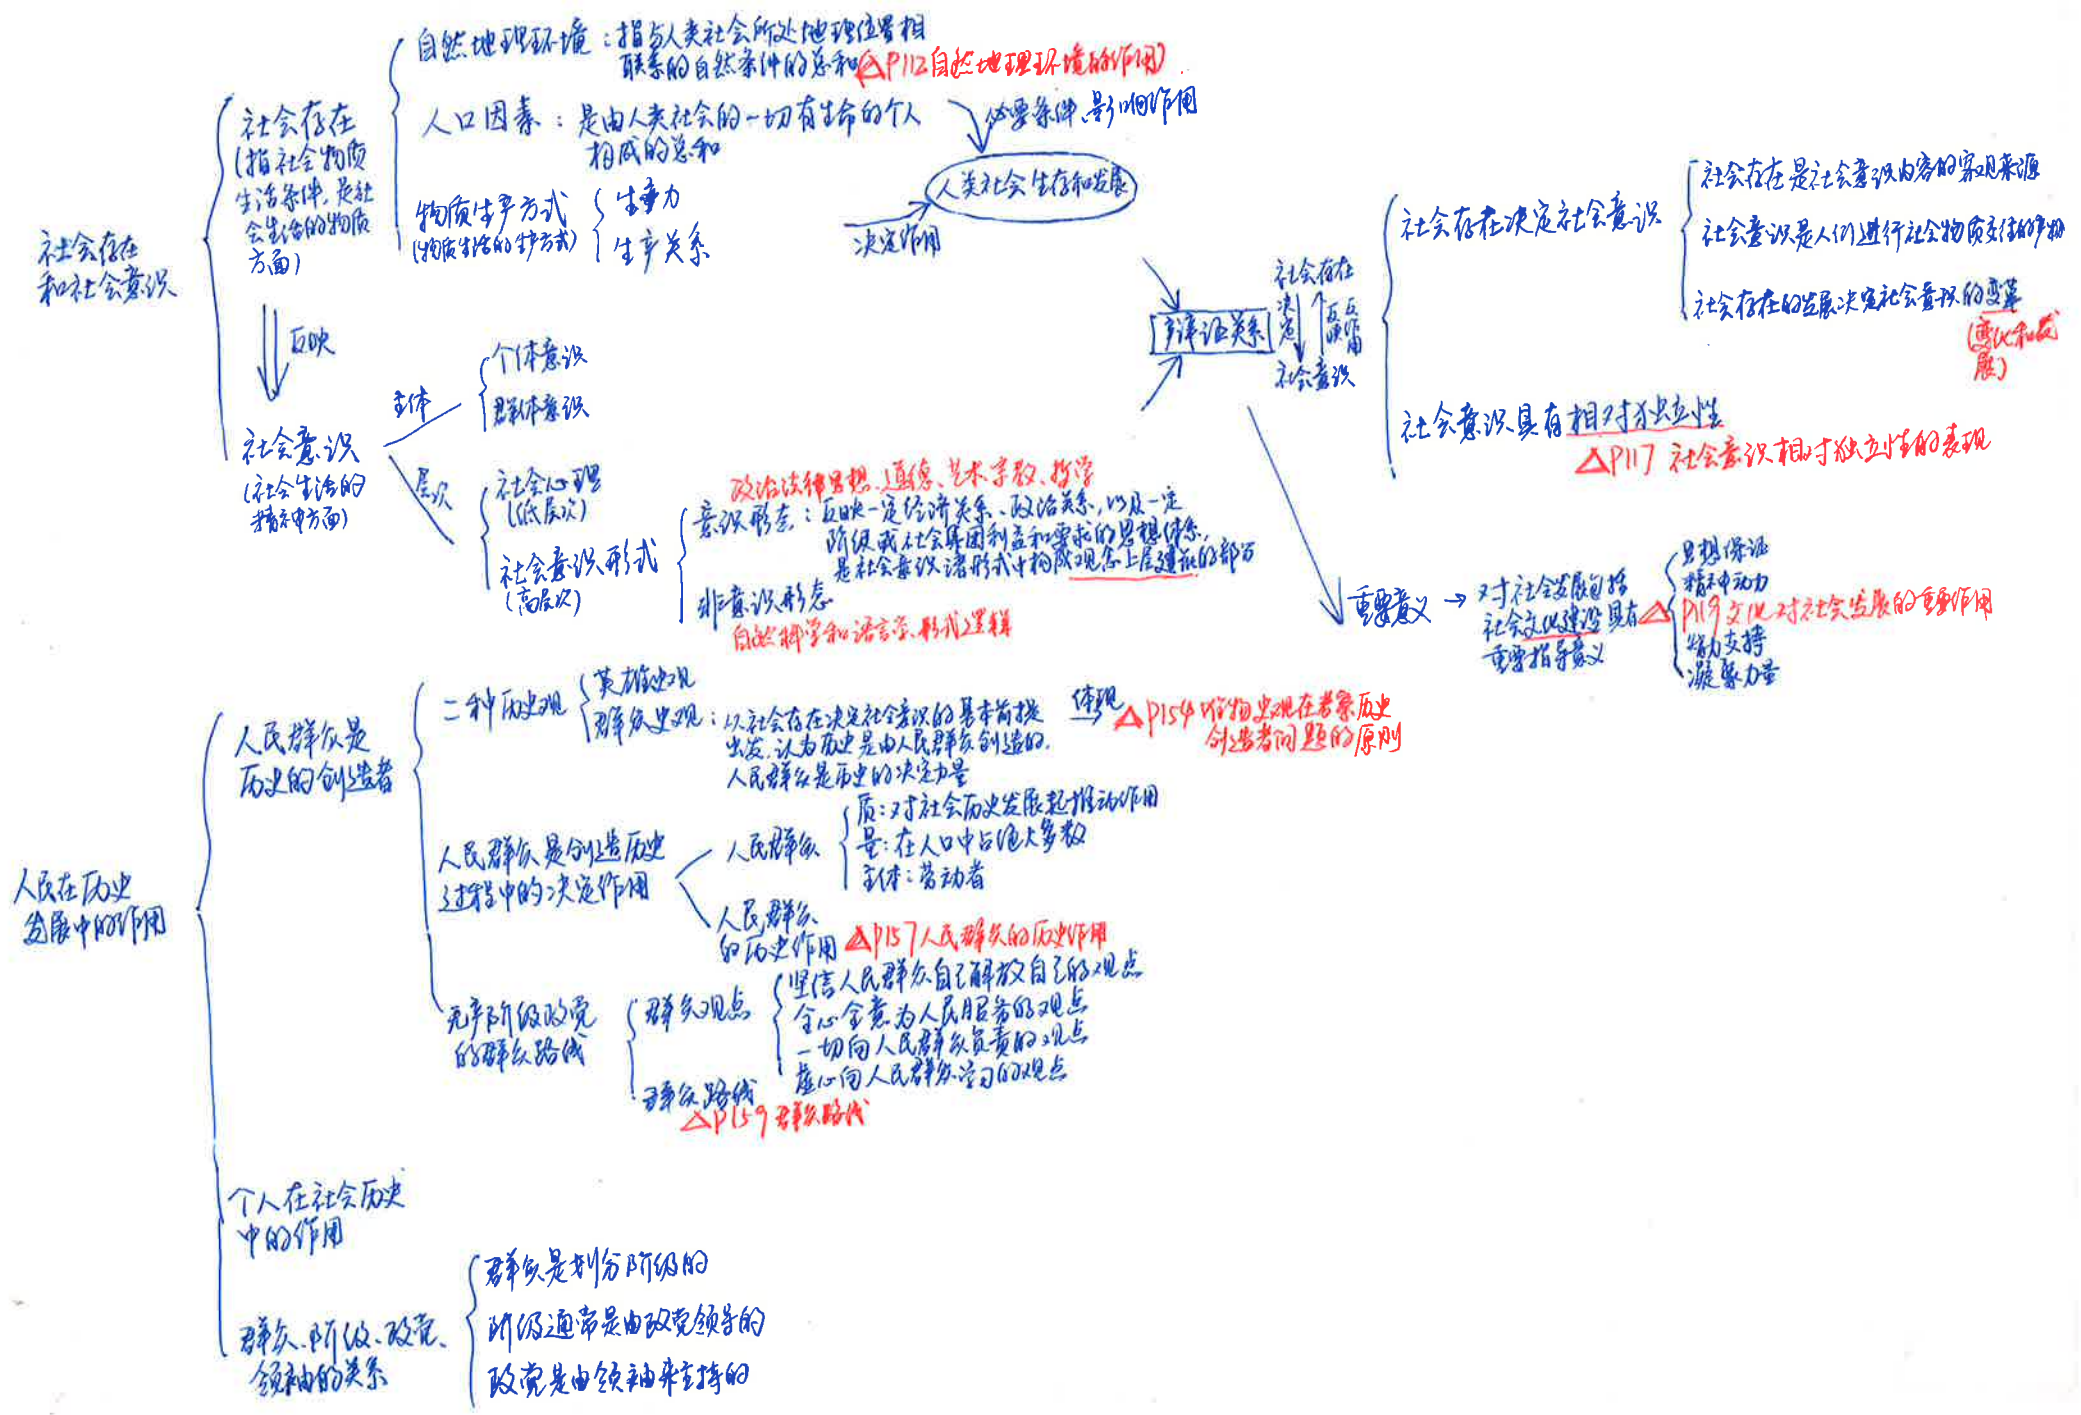 社会存在
和社会意识
社会存在
(指社会物质
生活条件,是社
会生活的物质
方面)
反映
社会意识
(社会生活的
精神方面)
自然地理环境:指与人类社会所处地理位置相
联系的自然条件的总和(△P112自然地理环境的作用)
人口因素:是由人类社会的一切有生命的个人
构成的总和
物质生产方式
(物质生活的生产方式)
生产力
生产关系
必要条件、影响作用
人类社会生存和发展
决定作用
主体
个体意识
群体意识
层次
社会心理
(低层次)
社会意识形式
(高层次)
政治法律思想、道德、艺术、宗教、哲学
意识形态:反映一定经济关系、政治关系,以及一定
阶级或社会集团利益和要求的思想体系,
是社会意识诸形式中构成观念上层建筑的部分
非意识形态
自然科学和语言学、形式逻辑
辩证关系
社会存在
决定
反映
反作用
社会意识
社会存在决定社会意识
社会存在是社会意识内容的客观来源
社会意识是人们进行社会物质交往的产物
社会存在的发展决定社会意识的变革
(变化和发
展)
社会意识具有相对独立性
△P117 社会意识相对独立性的表现
重要意义
对社会发展包括
社会文化建设具有
重要指导意义
思想保证
精神动力
△P119文化对社会发展的重要作用
智力支持
凝聚力量
人民在历史
发展中的作用
人民群众是
历史的创造者
二种历史观
英雄史观
群众史观:以社会存在决定社会意识的基本前提
出发,认为历史是由人民群众创造的,
人民群众是历史的决定力量
体现
△P154 唯物史观在考察历史
创造者问题的原则
人民群众是创造历史
过程中的决定作用
人民群众
质:对社会历史发展起推动作用
量:在人口中占绝大多数
主体:劳动者
人民群众
的历史作用
△P157人民群众的历史作用
无产阶级政党
的群众路线
群众观点
坚信人民群众自己解放自己的观点
全心全意为人民服务的观点
一切向人民群众负责的观点
虚心向人民群众学习的观点
群众路线
△P159群众路线
个人在社会历史
中的作用
群众、阶级、政党、
领袖的关系
群众是划分阶级的
阶级通常是由政党领导的
政党是由领袖来主持的